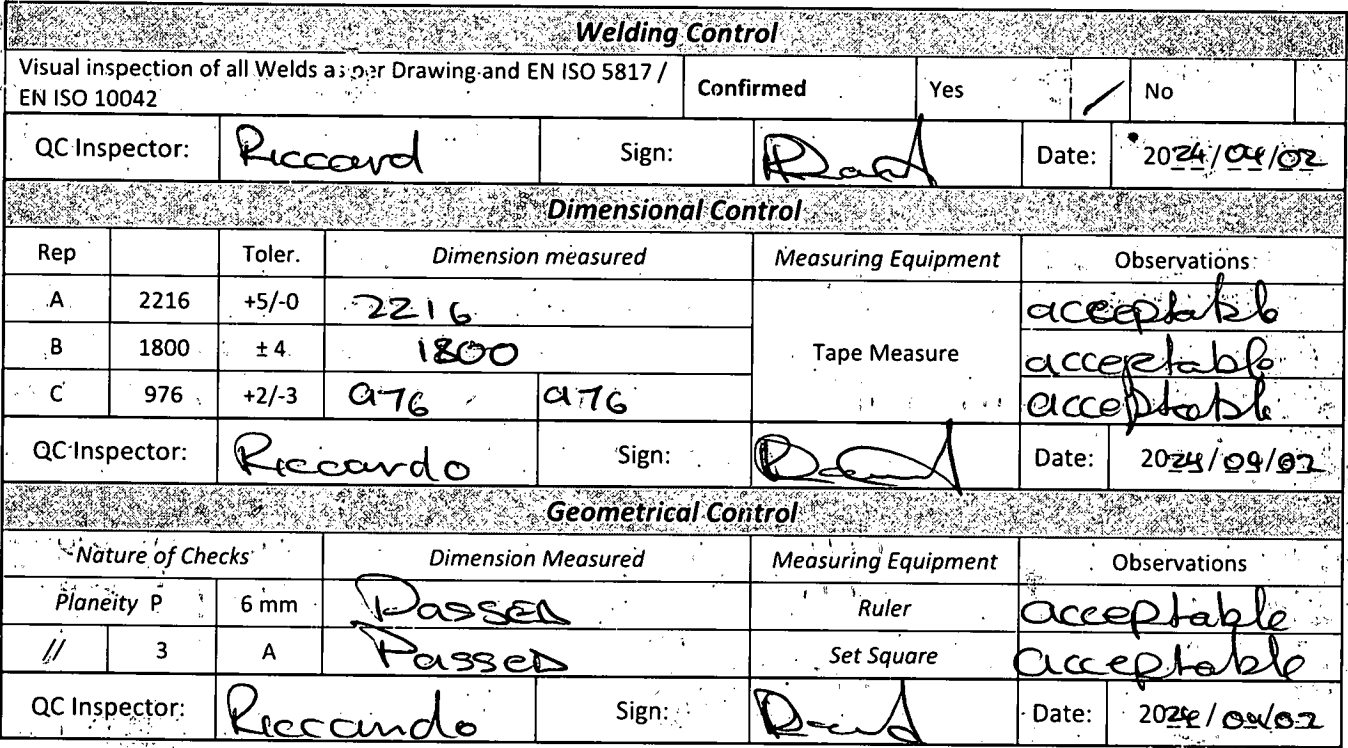 Welding Control
Visual inspection of all Welds as per Drawing and EN ISO 5817 /
EN ISO 10042
Confirmed Yes / No
QC Inspector: Riccard Sign: Date: 2024/04/02
Dimensional Control
Rep Toler. Dimension measured Measuring Equipment Observations
A 2216 +5/-0 2216 acceptable
B 1800 ± 4 1800 Tape Measure acceptable
C 976 +2/-3 976 976 acceptable
QC Inspector: Riccardo Sign: Date: 2024/04/02
Geometrical Control
Nature of Checks Dimension Measured Measuring Equipment Observations
Planeity P 6 mm Passed Ruler acceptable
// 3 A Passed Set Square acceptable
QC Inspector: Riccardo Sign: Date: 2024/04/02